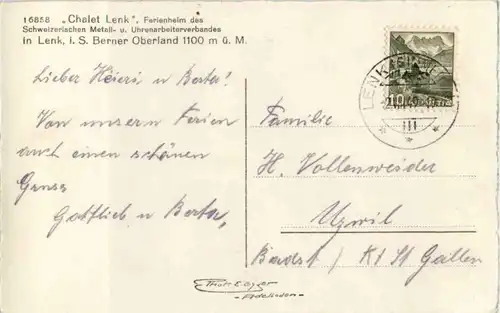 16858 „Chalet Lenk“, Ferienheim des
Schweizerischen Metall- u. Uhrenarbeiterverbandes
in Lenk, i. S. Berner Oberland 1100 m ü. M.
Lieber Heieri u Berta!
Von unsern Ferien
auch einen schönen
Gruss
Gottlieb u Berta,
Familie
H. Vollenweider
Uzwil
/ Kt St Gallen
LENK
10